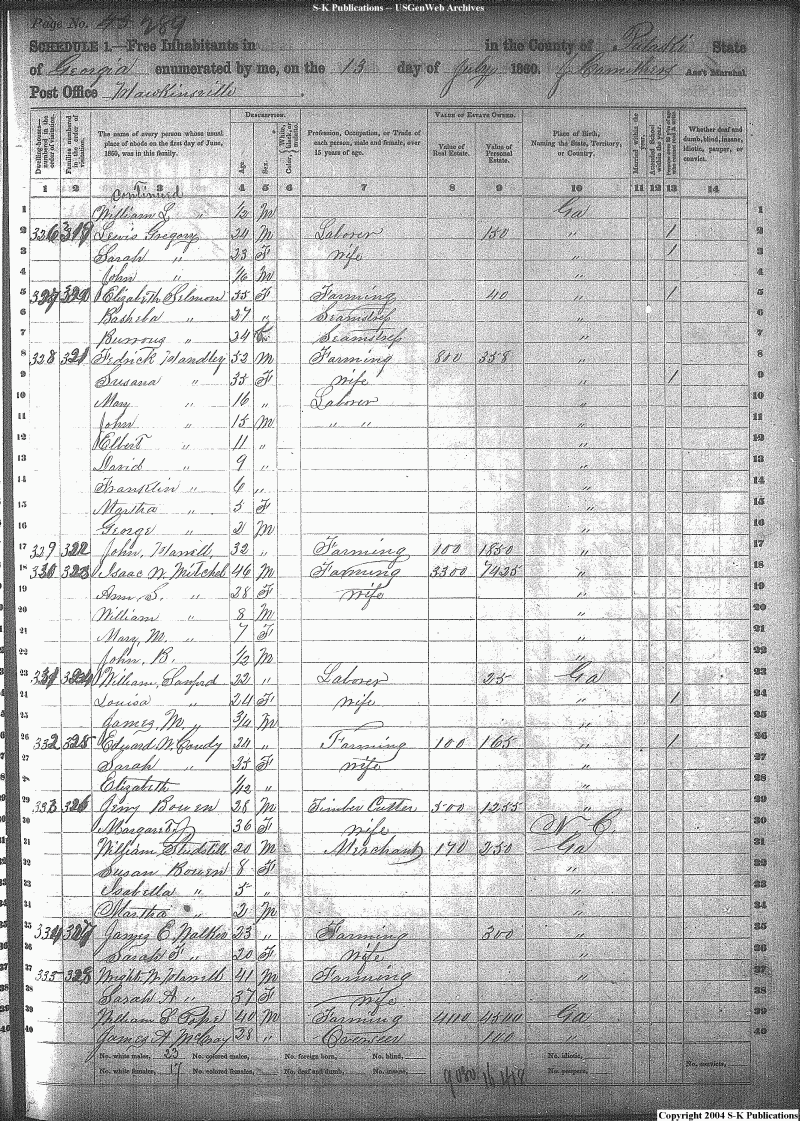 S-K Publications -- USGenWeb Archives
Page No. 55 289
SCHEDULE 1.—Free Inhabitants in in the County of Pulaski State
of Georgia enumerated by me, on the 13 day of July 1860. J Carruthers Ass't Marshal
Post Office Hawkinsville
DESCRIPTION. VALUE OF ESTATE OWNED.
Dwelling-houses—numbered in the order of visitation. Families numbered in the order of visitation. The name of every person whose usual place of abode on the first day of June, 1860, was in this family. Age. Sex. Color, White, black, or mulatto. Profession, Occupation, or Trade of each person, male and female, over 15 years of age. Value of Real Estate. Value of Personal Estate. Place of Birth, Naming the State, Territory, or Country. Married within the year. Attended School within the year. Whether deaf and dumb, blind, insane, idiotic, pauper, or convict.
1 2 3 4 5 6 7 8 9 10 11 12 13 14
Continued
1 William L " 1/2 M Ga 1
2 326 319 Lewis Gregory 24 M Laborer 150 " 1 2
3 Sarah " 23 F wife " 1 3
4 John " M " 4
5 327 320 Elizabeth Selmon 55 F Farming 40 " 1 5
6 Basheba " 27 " Seamstress " 6
7 Burrous " 24 Seamstress " 7
8 328 321 Fedrick Handley 52 M Farming 800 358 " 8
9 Susana " 35 F wife " 1 9
10 Mary " 16 " Laborer " 10
11 John " 15 M " " " 11
12 Elbert " 11 " " 12
13 David " 9 " " 13
14 Franklin " 6 " " 14
15 Martha " 5 F " 15
16 George " 2 M " 16
17 329 322 John, Harrill, 32 " Farming 100 1850 " 17
18 330 323 Isaac W. Mitchel 46 M Farming 3300 7425 " 18
19 Ann S. " 28 F wife " 19
20 William " 8 M " 20
21 Mary, M. " 7 F " 21
22 John, B. 1/2 M " 22
23 331 324 William, Sanford 22 " Laborer 25 Ga 23
24 Louisa " 24 F wife " 1 24
25 James, M " 3/4 M " 25
26 332 325 Edward W. Coudy 24 " Farming 100 165 " 1 26
27 Sarah " 35 F wife " 27
28 Elizabeth " " 28
29 333 326 Jerry Bowen 28 M Timber Cutter 500 1255 " 29
30 Margaret " 36 F wife N C. 30
31 William, Studstill 20 M Merchant 170 250 Ga 31
32 Susan Bowen 8 F " 32
33 Isabella " 5 " " 33
34 Martha " 2 M " 34
35 334 327 James E. Walker 23 " Farming 300 " 35
36 Sarah F " 20 F wife " 36
37 335 328 Wright W Harrill 41 M Farming " 37
38 Sarah A " 37 F wife 38
39 William S Pope 40 M Farming 4100 4500 Ga 39
40 James A. McCray 38 " Overseer 100 " 40
No. white males, 23 No. colored males, No. foreign born, No. blind, No. idiotic, No. convicts,
No. white females, 17 No. colored females, No. deaf and dumb, No. insane, No. paupers,
Copyright 2004 S-K Publications